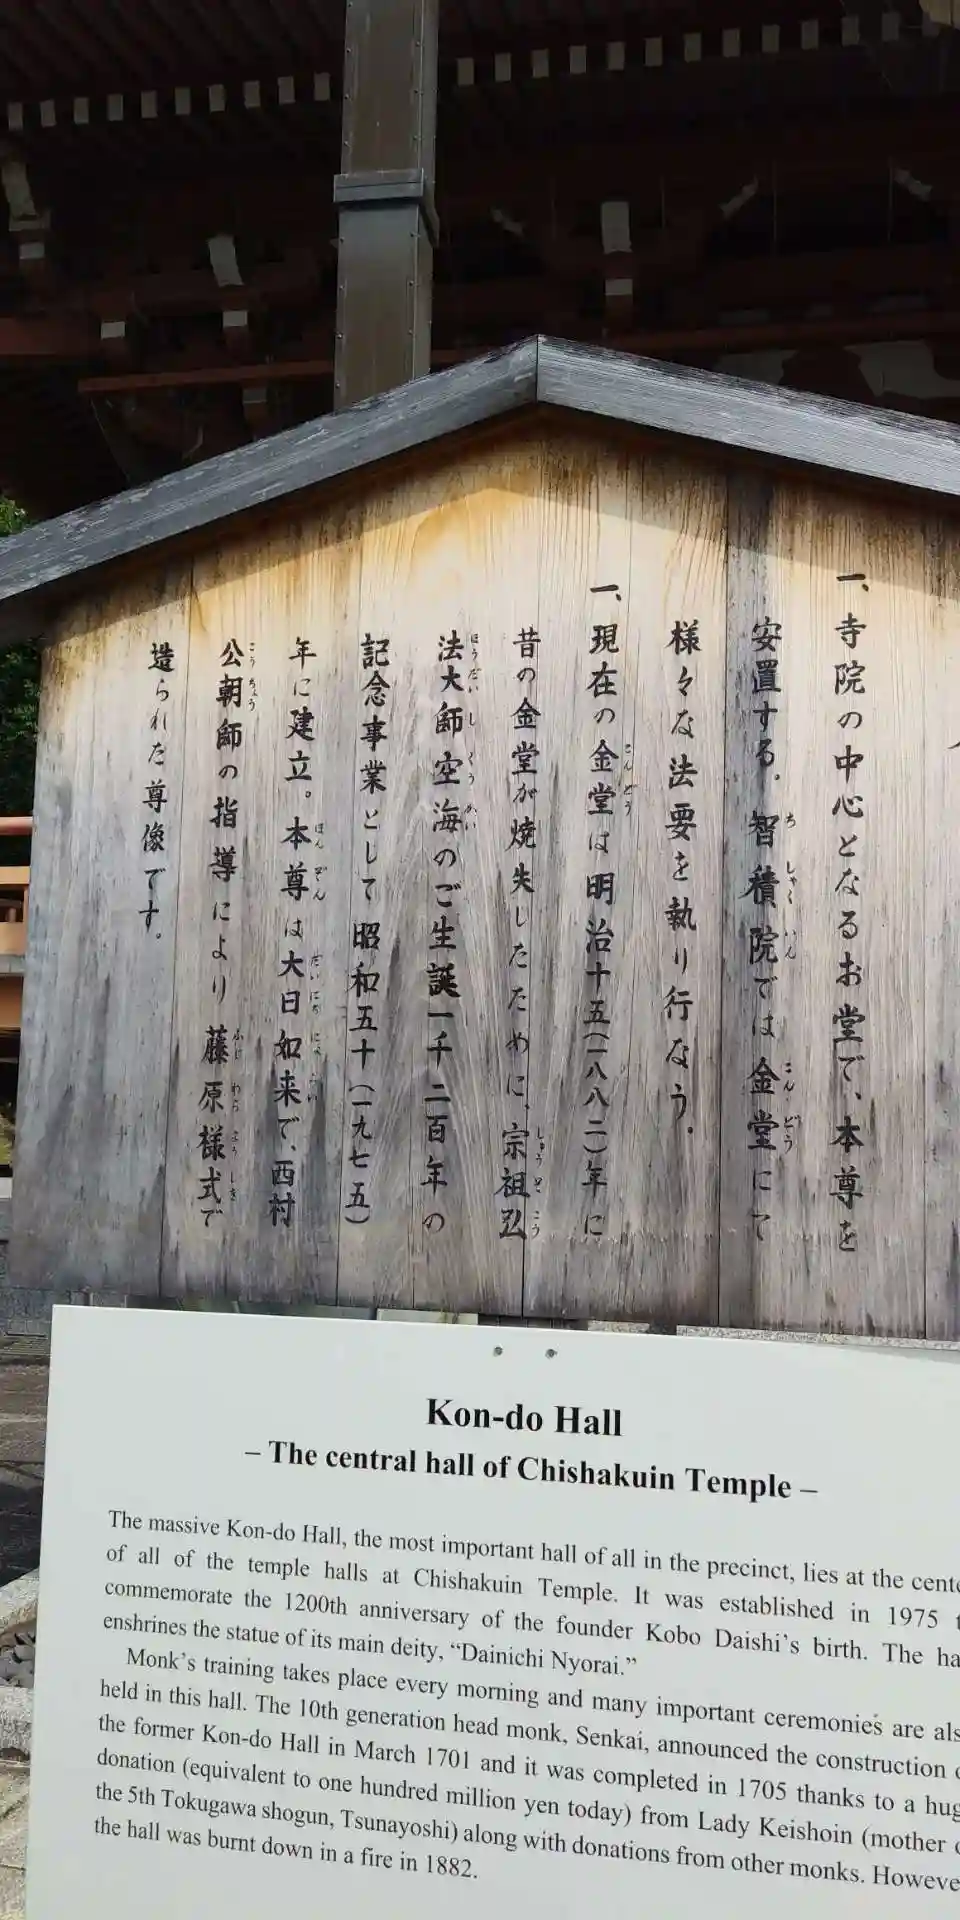 一、寺院の中心となるお堂で、本尊を
安置する。智積院では金堂にて
様々な法要を執り行なう。
一、現在の金堂は明治十五(一八八二)年に
昔の金堂が焼失したために、宗祖弘
法大師空海のご生誕一千二百年の
記念事業として昭和五十(一九七五)
年に建立。本尊は大日如来で、西村
公朝師の指導により藤原様式で
造られた尊像です。
Kon-do Hall
– The central hall of Chishakuin Temple –
The massive Kon-do Hall, the most important hall of all in the precinct, lies at the
of all of the temple halls at Chishakuin Temple. It was established in 1975
commemorate the 1200th anniversary of the founder Kobo Daishi's birth. The
enshrines the statue of its main deity, “Dainichi Nyorai.”
Monk's training takes place every morning and many important ceremonies are
held in this hall. The 10th generation head monk, Senkai, announced the construction
the former Kon-do Hall in March 1701 and it was completed in 1705 thanks to a
donation (equivalent to one hundred million yen today) from Lady Keishoin (mother
the 5th Tokugawa shogun, Tsunayoshi) along with donations from other monks.
the hall was burnt down in a fire in 1882.